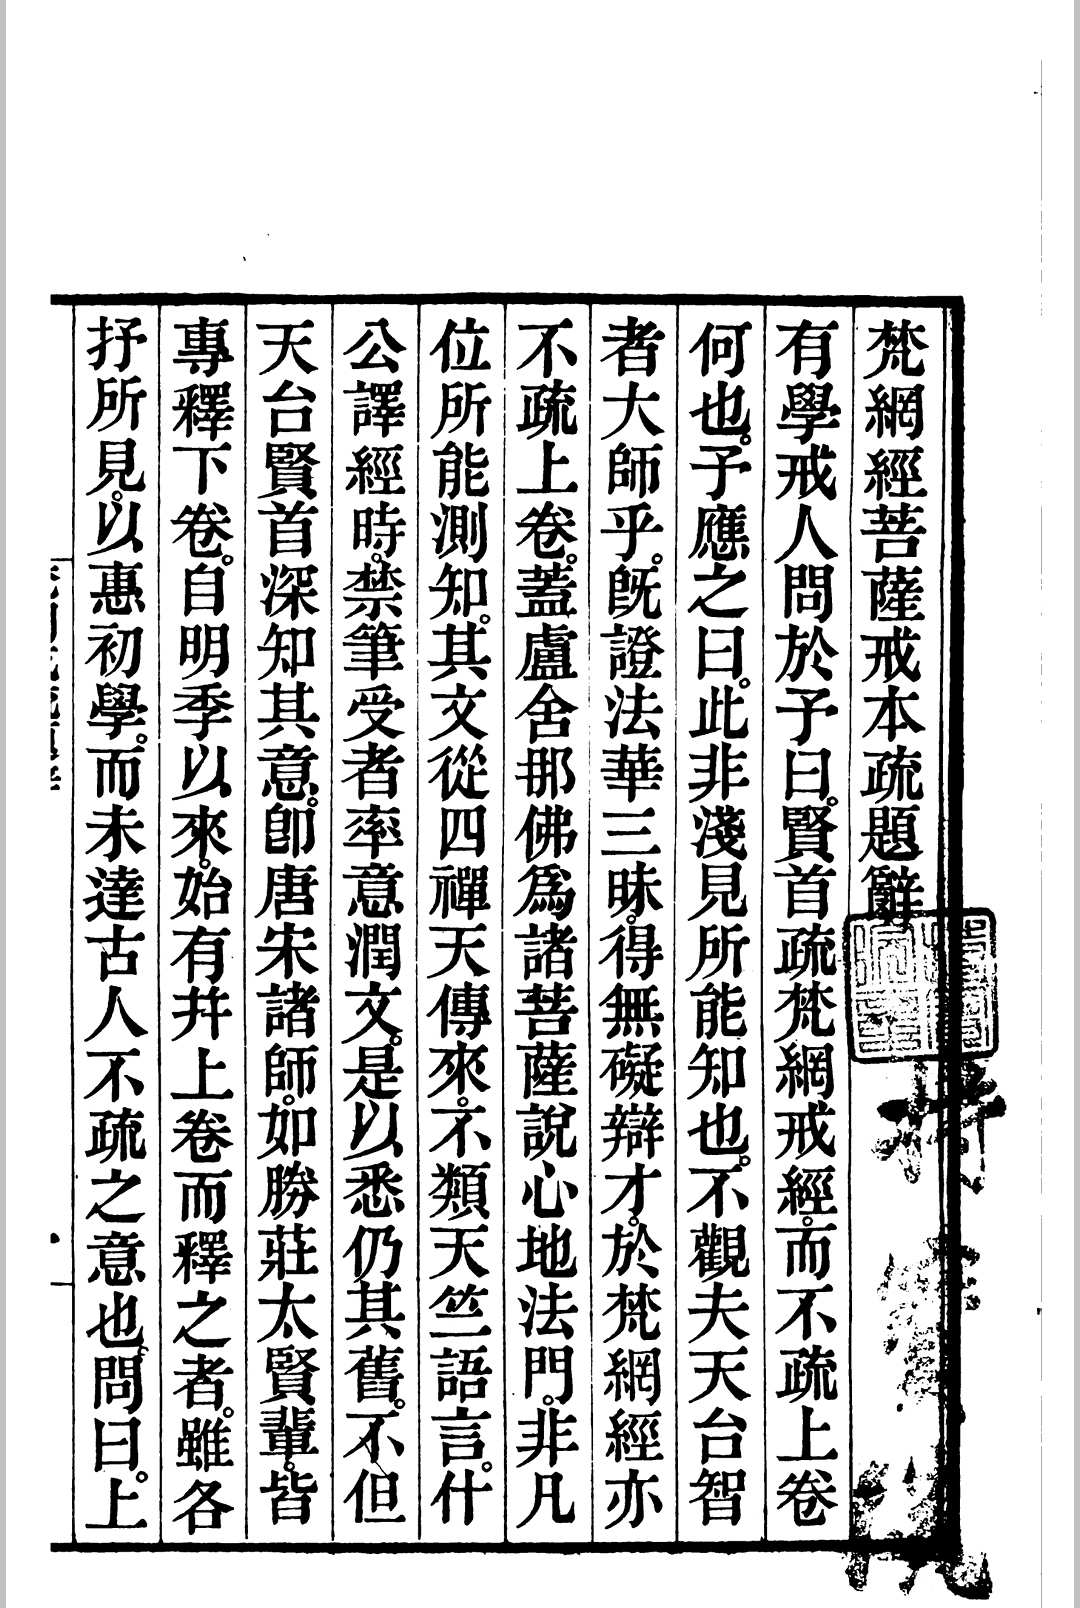 梵網經菩薩戒本疏題辭
有學戒人問於予曰。賢首疏梵網戒經。而不疏上卷
何也。予應之曰。此非淺見所能知也。不觀夫天台智
者大師乎。旣證法華三昧。得無礙辯才。於梵網經亦
不疏上卷。蓋盧舍那佛爲諸菩薩說心地法門。非凡
位所能測知。其文從四禪天傳來。不類天竺語言。什
公譯經時。禁筆受者率意潤文。是以悉仍其舊。不但
天台賢首深知其意。卽唐宋諸師。如勝莊太賢輩。皆
專釋下卷。自明季以來。始有幷上卷而釋之者。雖各
抒所見。以惠初學。而未達古人不疏之意也。問曰。上